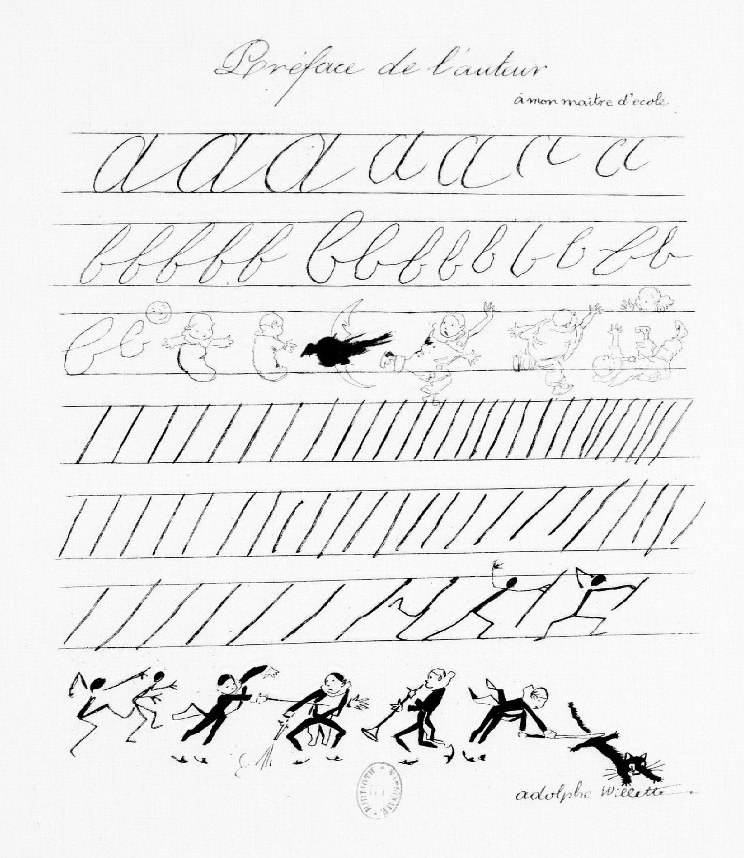 Préface de l'auteur
à mon maitre d'ecole
a a a a a a a
b b b b b b b b b b b b b b b
b b
adolphe Willette